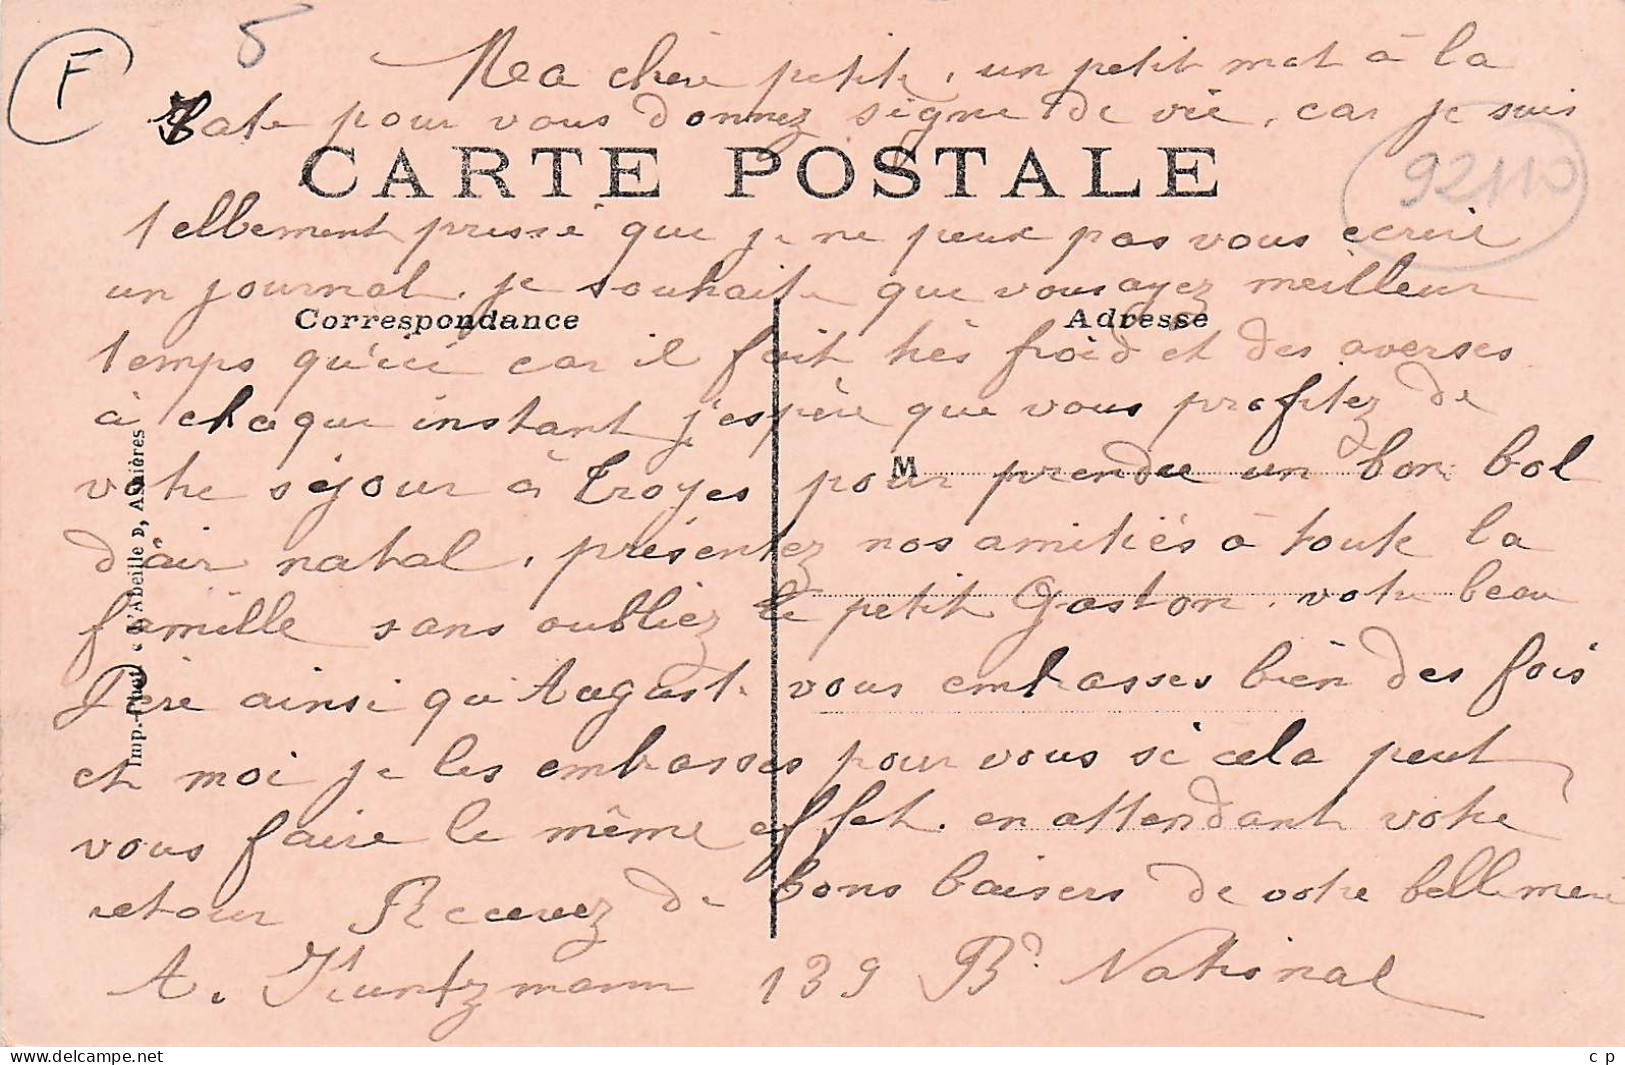 F
5
Ma chère petite, un petit mot à la
hate pour vous donnez signe de vie, car je suis
CARTE POSTALE
92110
tellement pressé que je ne peux pas vous écrire
un journal, je souhaite que vous ayez meilleur
Correspondance
Adresse
temps qu'ici car il fait très froid et des averses
à chaque instant j'espère que vous profitez de
M
votre séjour à Troyes pour prendre un bon bol
d'air natal, présentez nos amitiés à toute la
famille sans oubliez le petit Gaston, votre beau
Père ainsi qu'August. vous embrasses bien des fois
et moi je les embrasses pour vous si cela peut
vous faire le même effet. en attendant votre
retour Recevez de bons baisers de votre belle mère
A. Kuntzmann 139 Bd National
Imp.-Phot. « L'Abeille D, Asnières
www.delcampe.net
c p